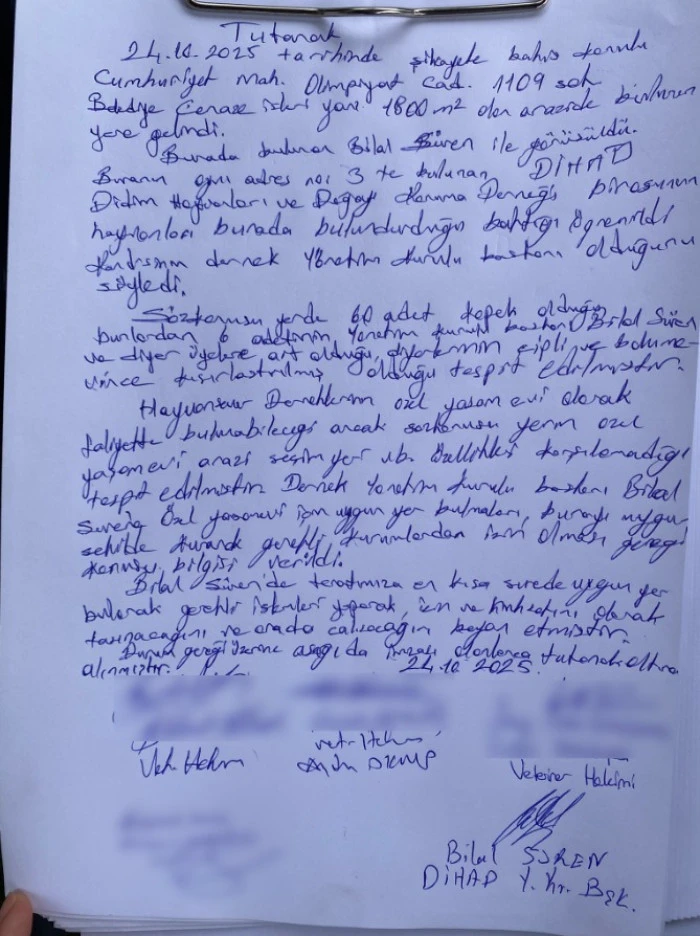 Tutanak
24.10.2025 tarihinde şikayete bahis konulu
Cumhuriyet Mah. Olimpiyat Cad. 1109 sok
Belediye Cenaze işleri yanı 1800 m² olan arazide bulunan
yere gelindi.
Burada bulunan Bilal Süren ile görüşüldü.
Buranın aynı adres no: 3 te bulunan DİHAD
Didim Hayvanları ve Doğayı Koruma Derneği binasının
hayvanları burada bulundurduğu baktığı öğrenildi
Kendisinin dernek Yönetim Kurulu başkanı olduğunu
söyledi.
Sözkonusu yerde 60 adet köpek olduğu
bunlardan 6 adetinin Yönetim kurulu başkanı Bilal Süren
ve diğer üyelere ait olduğu, diğerlerinin çipli ve
kısırlaştırılmış olduğu tespit edilmiştir.
Hayvansever Derneklerin özel yaşam evi olarak
faliyette bulunabileceği ancak sözkonusu yerin özel
yaşamevi arazi seçim yeri vb. özellikleri karşılamadığı
tespit edilmiştir. Dernek Yönetim Kurulu başkanı Bilal
Süren'e Özel yaşamevi için uygun yer bulmaları, burayı uygun
şekilde kurarak gerekli kurumlardan izin olması gereği
konusu bilgisi verildi.
Bilal Süren'de tarafımıza en kısa sürede uygun yer
bularak gerekli işlemleri yaparak, izin ve olarak
taşınacağını ve orada çalışacağın beyan etmiştir.
Durum gereği üzerine aşağıda imzası olanlarca tutanak altına
alınmıştır. 24.10.2025.
Vet. Hekim
Vet. Hekim
DKMP
Veteriner Hekimi
Bilal SÜREN
DİHAD Y. Kr. Bşk.